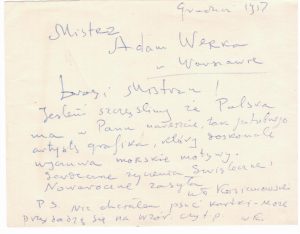 Grudzień 1957
Mistrz
Adam Werka
w Warszawie
Drogi Mistrzu!
Jesteśmy szczęśliwi że Polska
ma w Panu nareszcie, tak
artystę grafika, który doskonale
wyczuwa morskie motywy.
Serdeczne życzenia Świąteczne i
Noworoczne zasyła
P.S. Nie chciałem psuć kartki - może
przydadzą się na wzór